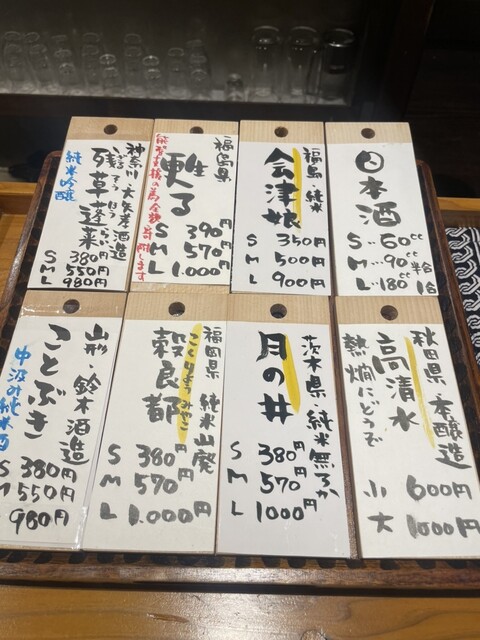 日本酒
S… 60cc
M… 90cc
L… 180cc
福島・純米
会津娘
S 350円
M 500円
L 900円
福島県
甦る
S 390円
M 570円
L 1.000円
神奈川・大矢孝酒造
残草蓬莱
ざる そう ほう らい
純米吟醸
S 380円
M 550円
L 980円
秋田県 本醸造
高清水
熱燗にどうぞ
小 600円
大 1000円
茨木県 純米無ろか
月の井
S 380円
M 570円
L 1000円
福岡県 純米山廃
こくりょうみやこ
穀良都
S 380円
M 570円
L 1.000円
山形・鈴木酒造
ことぶき
中汲み純米酒
S 380円
M 550円
980円